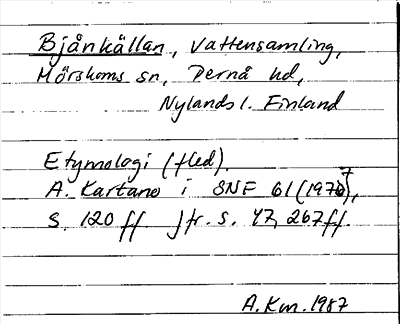 Bjånkällan, vattensamling,
Mörskoms sn, Pernå hd,
Nylands l. Finland
Etymologi (fled).
A. Kartano i SNF 61 (1977),
s. 120 ff jfr. s. 47, 267 ff.
A. Km. 1987